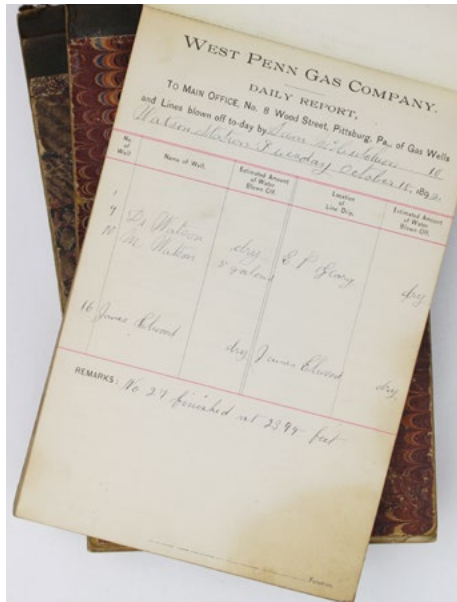 WEST PENN GAS COMPANY.
DAILY REPORT,
TO MAIN OFFICE, No. 8 Wood Street, Pittsburg, Pa., of Gas Wells
and Lines blown off to-day by
Watson Station Tuesday October 18, 1892.
No. of Well.
Name of Well.
Estimated Amount of Water Blown Off.
Location of Line Drip.
Estimated Amount of Water Blown Off.
D. Watson dry
M Watson
dry
16 James Elwood dry James Elwood dry
REMARKS: No 27 finished at 2399 feet
Foreman.